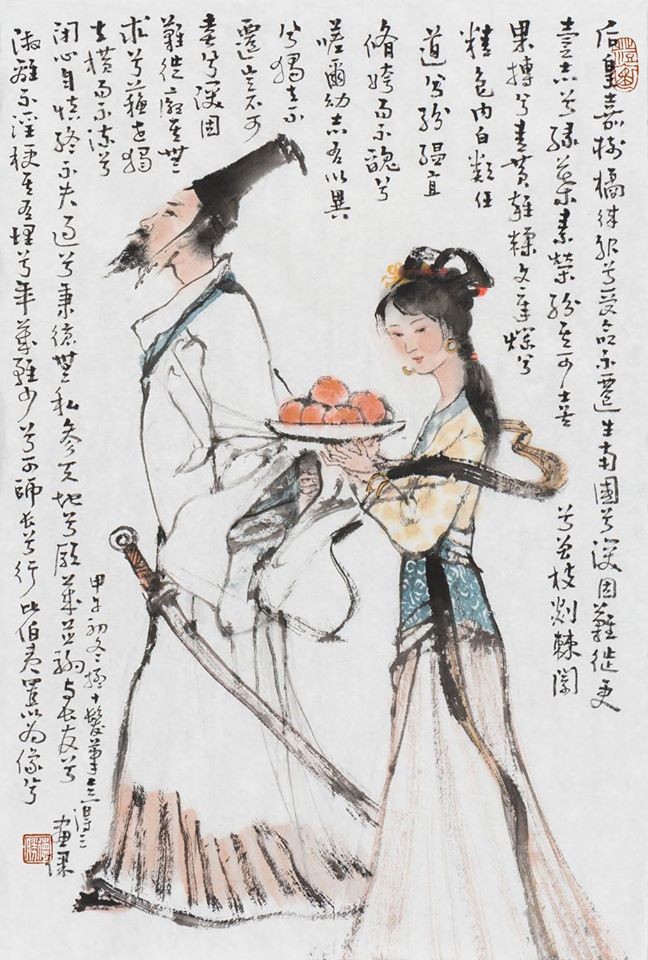 后皇嘉樹橘徠服兮受命不遷生南國兮深固難徙更
壹志兮綠葉素榮紛其可喜兮曾枝剡棘圜
果摶兮青黃雜糅文章爛兮
精色內白類任
道兮紛縕宜
脩姱而不醜兮
嗟爾幼志有以異
兮獨立不
遷豈不可
喜兮深固
難徙廓其無
求兮蘇世獨
立橫而不流兮
閉心自慎終不失過兮秉德無私參天地兮願歲並謝與長友兮
淑離不淫梗其有理兮年歲雖少可師長兮行比伯夷置以為像兮
甲午初冬十髮筆意